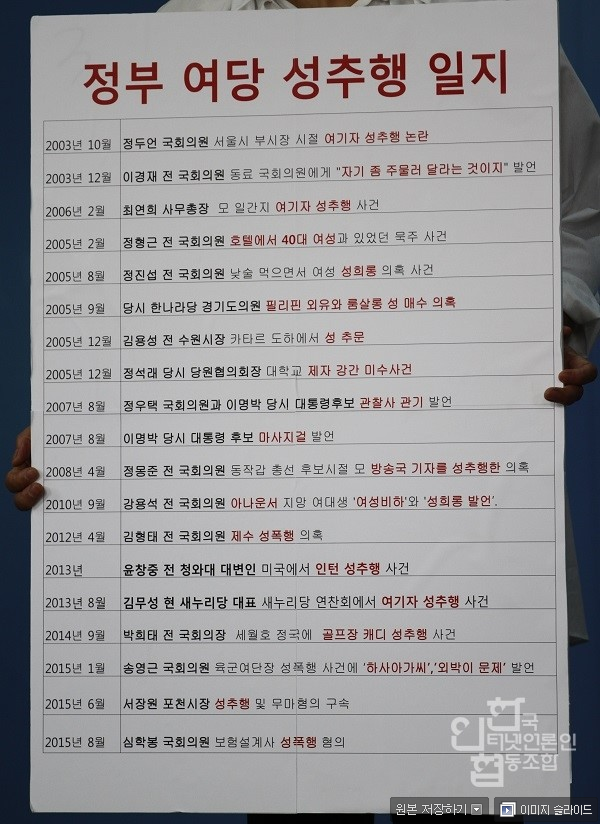 정부 여당 성추행 일지
2003년 10월 정두언 국회의원 서울시 부시장 시절 여기자 성추행 논란
2003년 12월 이경재 전 국회의원 동료 국회의원에게 "자기 좀 주물러 달라는 것이지" 발언
2006년 2월 최연희 사무총장 모 일간지 여기자 성추행 사건
2005년 2월 정형근 전 국회의원 호텔에서 40대 여성과 있었던 묵주 사건
2005년 8월 정진섭 전 국회의원 낮술 먹으면서 여성 성희롱 의혹 사건
2005년 9월 당시 한나라당 경기도의원 필리핀 외유와 룸살롱 성 매수 의혹
2005년 12월 김용성 전 수원시장 카타르 도하에서 성 추문
2005년 12월 정석래 당시 당원협의회장 대학교 제자 강간 미수사건
2007년 8월 정우택 국회의원과 이명박 당시 대통령후보 관찰사 관기 발언
2007년 8월 이명박 당시 대통령 후보 마사지걸 발언
2008년 4월 정몽준 전 국회의원 동작갑 총선 후보시절 모 방송국 기자를 성추행한 의혹
2010년 9월 강용석 전 국회의원 아나운서 지망 여대생 '여성비하'와 '성희롱 발언'.
2012년 4월 김형태 전 국회의원 제수 성폭행 의혹
2013년 윤창중 전 청와대 대변인 미국에서 인턴 성추행 사건
2013년 8월 김무성 현 새누리당 대표 새누리당 연찬회에서 여기자 성추행 사건
2014년 9월 박희태 전 국회의장 세월호 정국에 골프장 캐디 성추행 사건
2015년 1월 송영근 국회의원 육군여단장 성폭행 사건에 '하사아가씨','외박이 문제' 발언
2015년 6월 서장원 포천시장 성추행 및 무마혐의 구속
2015년 8월 심학봉 국회의원 보험설계사 성폭행 혐의
한국
인터넷언론인
협동조합
원본 저장하기 이미지 슬라이드